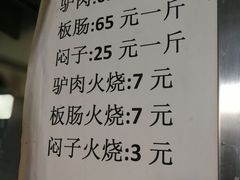 驴肉:
板肠:65 元一斤
闷子:25 元一斤
驴肉火烧:7 元
板肠火烧:7 元
闷子火烧:3 元